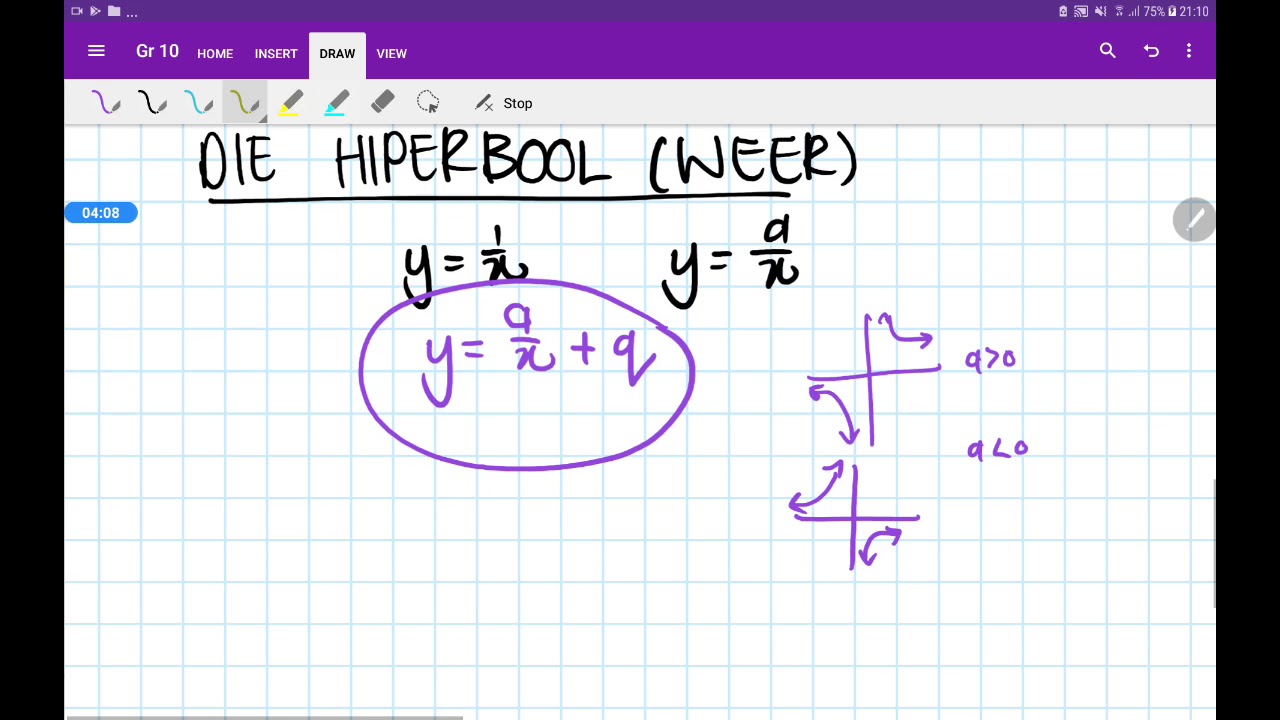 ... 75% 21:10
Gr 10 HOME INSERT DRAW VIEW
Stop
DIE HIPERBOOL (WEER)
04:08
y = 1/x y = a/x
y = a/x + q
a>0
a<0